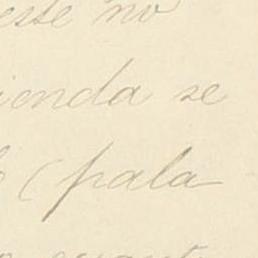 este no
ienda se
(pala